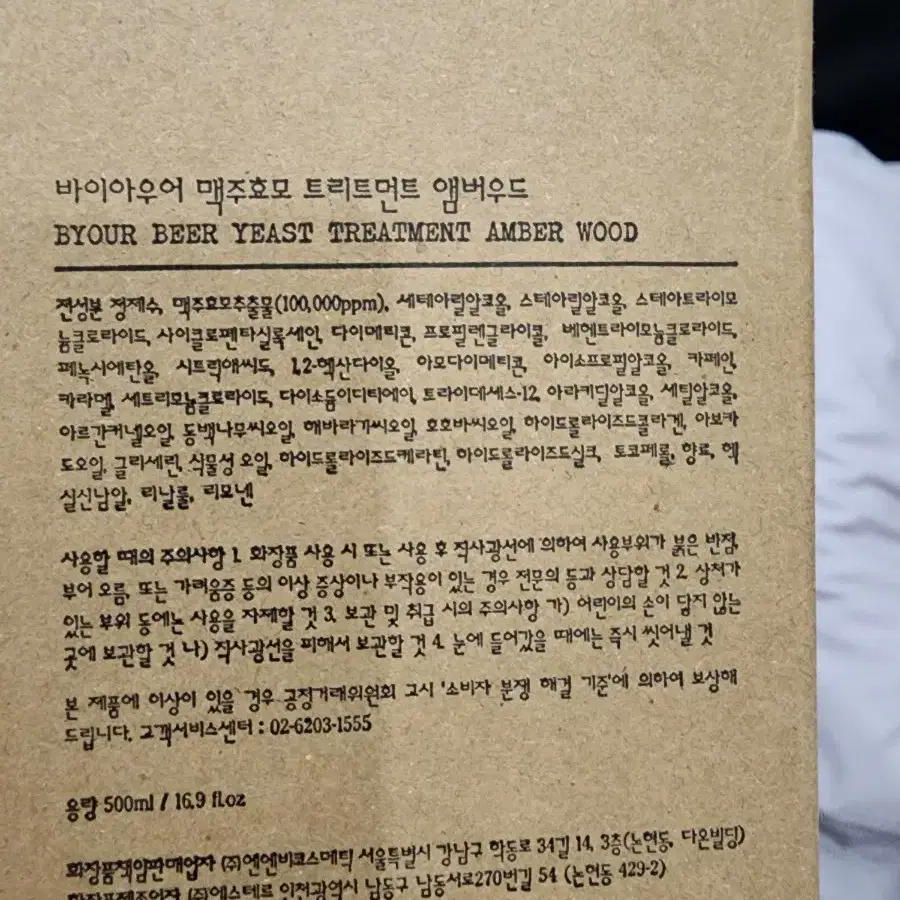 바이아우어 맥주효모 트리트먼트 앰버우드
BYOUR BEER YEAST TREATMENT AMBER WOOD
전성분 정제수, 맥주효모추출물(100,000ppm), 세테아릴알코올, 스테아릴알코올, 스테아트라이모
늄클로라이드, 사이클로펜타실록세인, 다이메티콘, 프로필렌글라이콜, 베헨트라이모늄클로라이드,
페녹시에탄올, 시트릭애씨드, 1,2-헥산다이올, 아모다이메티콘, 아이소프로필알코올, 카페인,
카라멜, 세트리모늄클로라이드, 다이소듐이디티에이, 트라이데세스-12, 아라키딜알코올, 세틸알코올,
아르간커넬오일, 동백나무씨오일, 해바라기씨오일, 호호바씨오일, 하이드롤라이즈드콜라겐, 아보카
도오일, 글리세린, 식물성 오일, 하이드롤라이즈드케라틴, 하이드롤라이즈드실크, 토코페롤, 향료, 헥
실신남알, 리날룰, 리모넨
사용할 때의 주의사항 1. 화장품 사용 시 또는 사용 후 직사광선에 의하여 사용부위가 붉은 반점,
부어 오름, 또는 가려움증 등의 이상 증상이나 부작용이 있는 경우 전문의 등과 상담할 것 2. 상처가
있는 부위 등에는 사용을 자제할 것 3. 보관 및 취급 시의 주의사항 가) 어린이의 손이 닿지 않는
곳에 보관할 것 나) 직사광선을 피해서 보관할 것 4. 눈에 들어갔을 때에는 즉시 씻어낼 것
본 제품에 이상이 있을 경우 공정거래위원회 고시 '소비자 분쟁 해결 기준'에 의하여 보상해
드립니다. 고객서비스센터 : 02-6203-1555
용량 500ml / 16.9 fl.oz
화장품책임판매업자 (주)엔엔비코스메틱 서울특별시 강남구 학동로 34길 14, 3층(논현동, 다온빌딩)
화장품제조업자 (주)에스테르 인천광역시 남동구 남동서로270번길 54 (논현동 429-2)